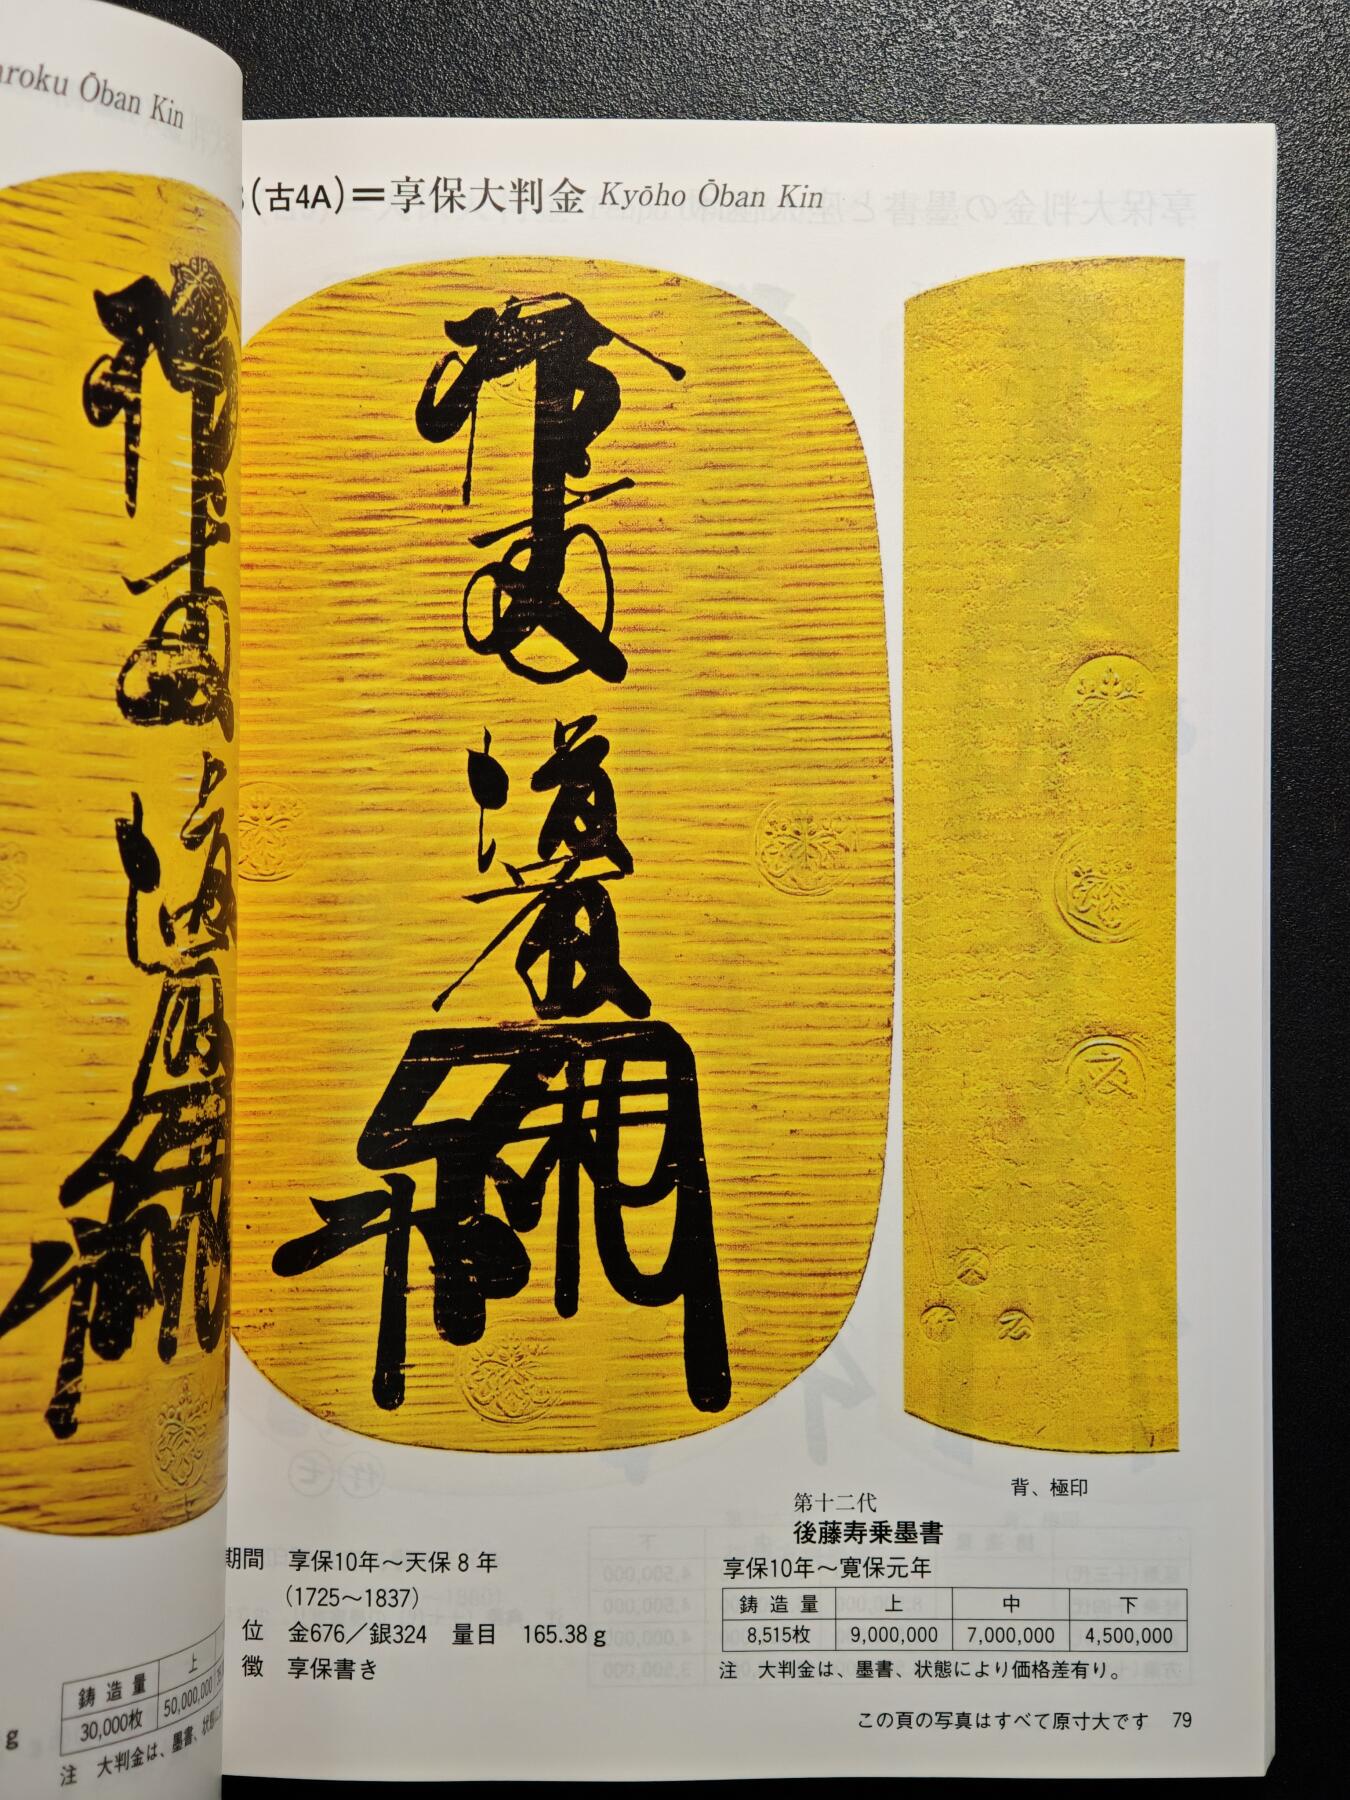 Ōban Kin
鋳造量 上
30,000枚 50,000,000
g
注 大判金は、墨書、状態に
(古4A)=享保大判金 Kyōho Ōban Kin
背、極印
第十二代
後藤寿乗墨書
享保10年～寛保元年
期間 享保10年～天保8年
(1725～1837)
位 金676／銀324 量目 165.38g
徴 享保書き
鋳造量 上 中 下
8,515枚 9,000,000 7,000,000 4,500,000
注 大判金は、墨書、状態により価格差有り。
この頁の写真はすべて原寸大です 79